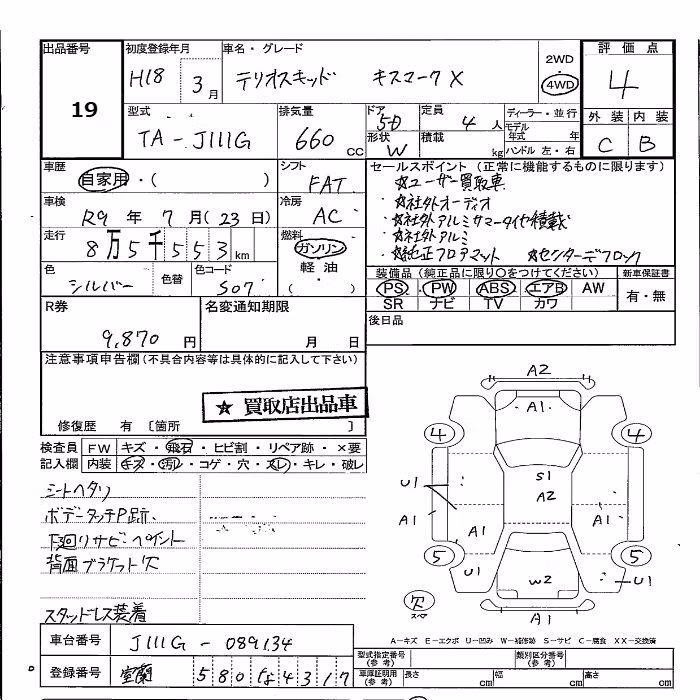 出品番号 19
初度登録年月 H18 3月
車名・グレード テリオスキッド キスマークX
2WD
4WD
評価点 4
外装 内装
C B
型式 TA-J111G
排気量 660 CC
ドア 5D
形状 W
定員 4人
積載 kg
ディーラー・並行
モデル年式 年
ハンドル 左・右
車歴 自家用・( )
シフト FAT
車検 R9年7月(23日)
冷房 AC
走行 8万5千553km
燃料 ガソリン
軽油
( )
色 シルバー
色替
色コード S07
セールスポイント (正常に機能するものに限ります)
☆ユーザー買取車
☆社外オーディオ
☆社外アルミサマータイヤ積載
☆社外アルミ
☆純正フロアマット ☆センターデフロック
装備品 (純正品に限り〇をつけてください)
PS PW ABS エアB AW
SR ナビ TV カワ
新車保証書
有・無
後日品
R券 9,870円
名変通知期限 月 日
注意事項申告欄(不具合内容等は具体的に記入して下さい)
☆ 買取店出品車
修復歴 有 〔箇所 〕
検査員記入欄
FW キズ・飛石・ヒビ割・リペア跡・×要
内装 キズ・汚レ・コゲ・穴・スレ・キレ・破レ
シートヘタリ
ボデータッチP跡.
下廻りサビ・ペイント
背面ブラケット欠
スタッドレス装着
A2
A1
4 4
U1
S1
A2
A1 A1 A1 A1
5 5
U1 W2 U1
欠
スペア
A1
A-キズ E-エクボ U-凹み W-補修跡 S-サビ C-腐食 XX-交換済
車台番号 J111G-089134
登録番号 室蘭 580 な 4317
型式指定番号(参考)
類別区分番号(参考)
車庫証明用(参考) 長さ cm 幅 cm 高さ cm